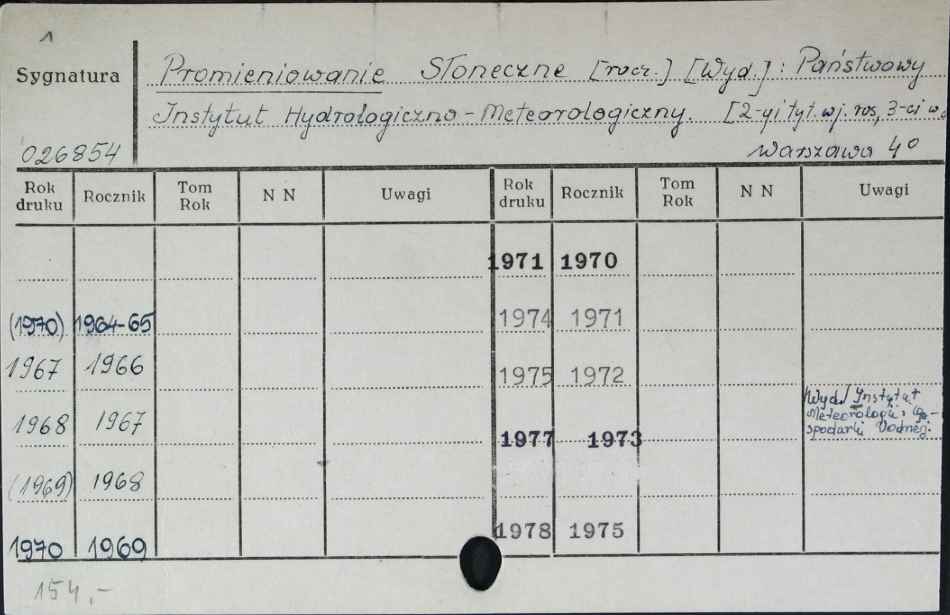 1
Sygnatura
Promieniowanie Słoneczne [rocz.] [Wyd.]: Państwowy
Instytut Hydrologiczno-Meteorologiczny. [2-gi tyt. w j. ros, 3-ci w
026854
Warszawa 4°
Rok druku Rocznik Tom Rok N N Uwagi Rok druku Rocznik Tom Rok N N Uwagi
1971 1970
(1970) 1964-65 1974 1971
1967 1966 1975 1972
1968 1967 1977 1973 Wyd. Instytut
Meteorologii i Go-
spodarki Wodnej.
(1969) 1968
1970 1969 1978 1975
154,-